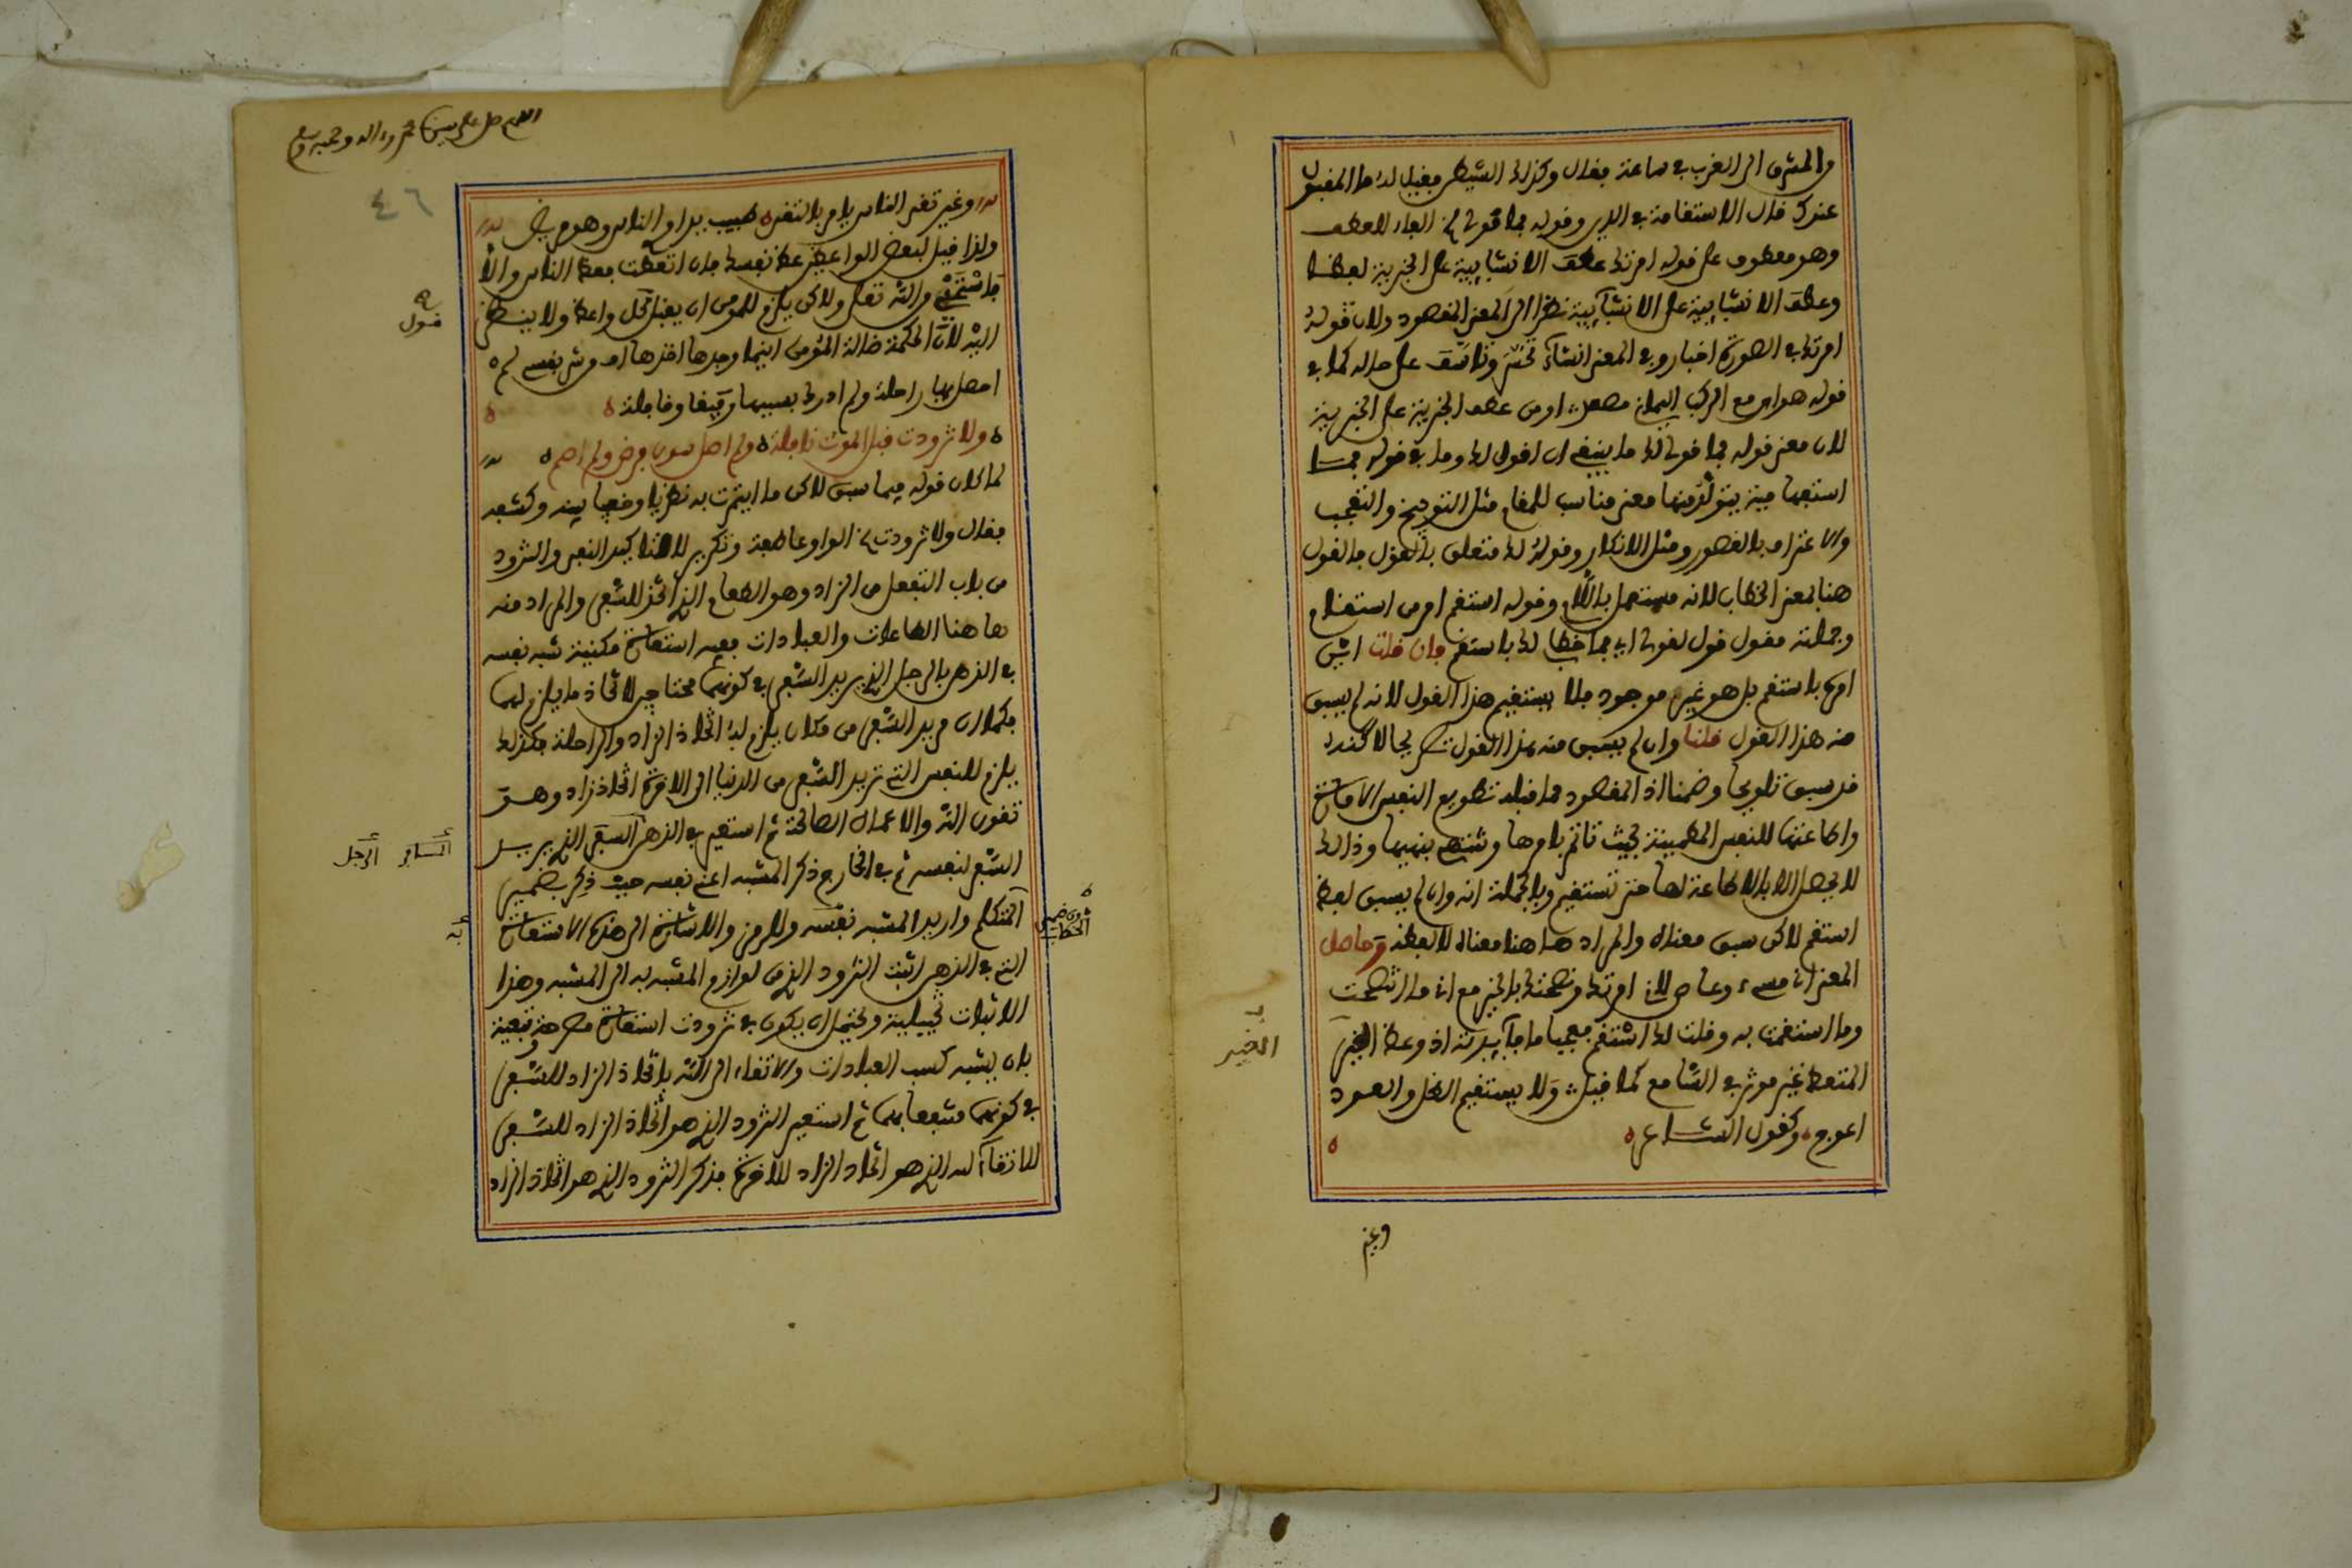 والمشرق الى الغرب في ساعة فقال وكذلك الشيطن فقيل له ما المقبول
عندك قال الاستقامة في الدين وقوله فما قولي الفاء للعطف
وهو معطوف على قوله امرتك عطف الانشايية على الخبرية لفظا
وعطف الانشايية على الانشايية نظرا الى المعنى المقصود ولان قوله
امرتك في الصورة اخبار وفي المعنى انشاء تحسر وتاسف على حاله كما في
قوله هواي مع الركب اليمانين مصعد او من عطف الخبرية على الخبرية
لان معنى قوله فما قولي لك ما ينبغي ان اقول لك وما في قوله فما
استفهامية يتولد منها معنى مناسب للمقام مثل التوبيخ والتعجب
والاعتراف بالقصور ومثل الانكار وقوله لك متعلق بالقول فالقول
هنا بمعنى الخطاب لانه مستعمل باللام وقوله استقم امر من استقام
وجملته مقول قول لقولي اي فما خطابي لك باستقم فان قلت اين
امره باستقم بل هو غير موجود فلا يستقيم هذا القول لانه لم يسبق
منه هذا القول قلنا وان لم يسبق منه هذا القول صريحا لاكنه
قد سبق تلويحا وضمنا اذ المقصود مما قبله تطويع النفس الامارة
واطاعتها للنفس المطمينة بحيث تاتم بامرها وتنتهي بنهيها وذالك
لا يحصل الا بالاطاعة لها حتى تستقيم وبالجملة انه وان لم يسبق لفظ
استقم لاكن سبق معناه والمراد هاهنا معناه لا لفظه وحاصل
المعنى انا مسيء وعاص لاني امرتك ونصحتك بالخير مع انا ما انتصحت
وما استقمت به وقلت لك استقم فيما فايدته اذ وعظ الغير
المتعظ غير موثر في السامع كما قيل ولا يستقيم الظل والعود
اعوج وكقول الشاعر
الغير
وغير
اللهم صل على سيدنا محمد واله وصحبه وسلم
٤٦
وغير تقي يامر الناس بالتقى طبيب يداوي الناس وهو مريض
ولذا قيل لبعض الواعظين عظ نفسك فان اتعظت فعظ الناس والا
فاستحي من الله تعلى ولاكن يلزم للمومن ان يقبل كل واعظ ولا ينظر
قول
اليه لان الحكمة ضالة المؤمن اينما وجدها اخذها
احصل بها راحلة ولم ادرك بسببها رفيقا وقافلة
ولا تزودت قبل الموت نافلة ولم اصل سوى فرض ولم اصم
لما كان قوله فيما سبق لاكن ما ايتمرت به نظريا وخفيا بينه وكشفه
فقال ولا تزودت الواو عاطفة وتكرير لا لتاكيد النفي والتزود
من باب التفعل من الزاد وهو الطعام الذي اتخذ للسفر والمراد منه
هاهنا الطاعات والعبادات ففيه استعارة مكنية شبه نفسه
في الذهن بالرجل الذي يريد السفر في كونهما محتاجين لاتخاذ ما يلزم لهما
فكما ان مريد السفر من مكان يلزم له اتخاذ الزاد والراحلة فكذلك
يلزم للنفس التي تريد السفر من الدنيا الى الاخرة اتخاذ زاد وهو
تقوى الله والاعمال الصالحة ثم استعير في الذهن السفر الذي يريد
المسافر الرجل
السفر لنفسه ثم في الخارج ذكر المشبه اعني نفسه حيث ذكر بضمير
المتكلم واريد المشبه نفسه وللرمز والاشارة الى هذه الاستعارة
به
الخطاب
التي في الذهن اثبت التزود الذي من لوازم المشبه به الى المشبه وهذا
الاثبات تخييلية ويحتمل ان يكون في تزودت استعارة مصرحة وتبعية
بان يشبه كسب العبادات والاتقاء الى الله باتخاذ الزاد للسفر
في كونهما منتفعا بهما ثم استعير التزود الذي هو اتخاذ الزاد للسفر
للاتقاء له الذي هو اتخاذ الزاد للاخرة فذكر التزود الذي هو اتخاذ الزاد